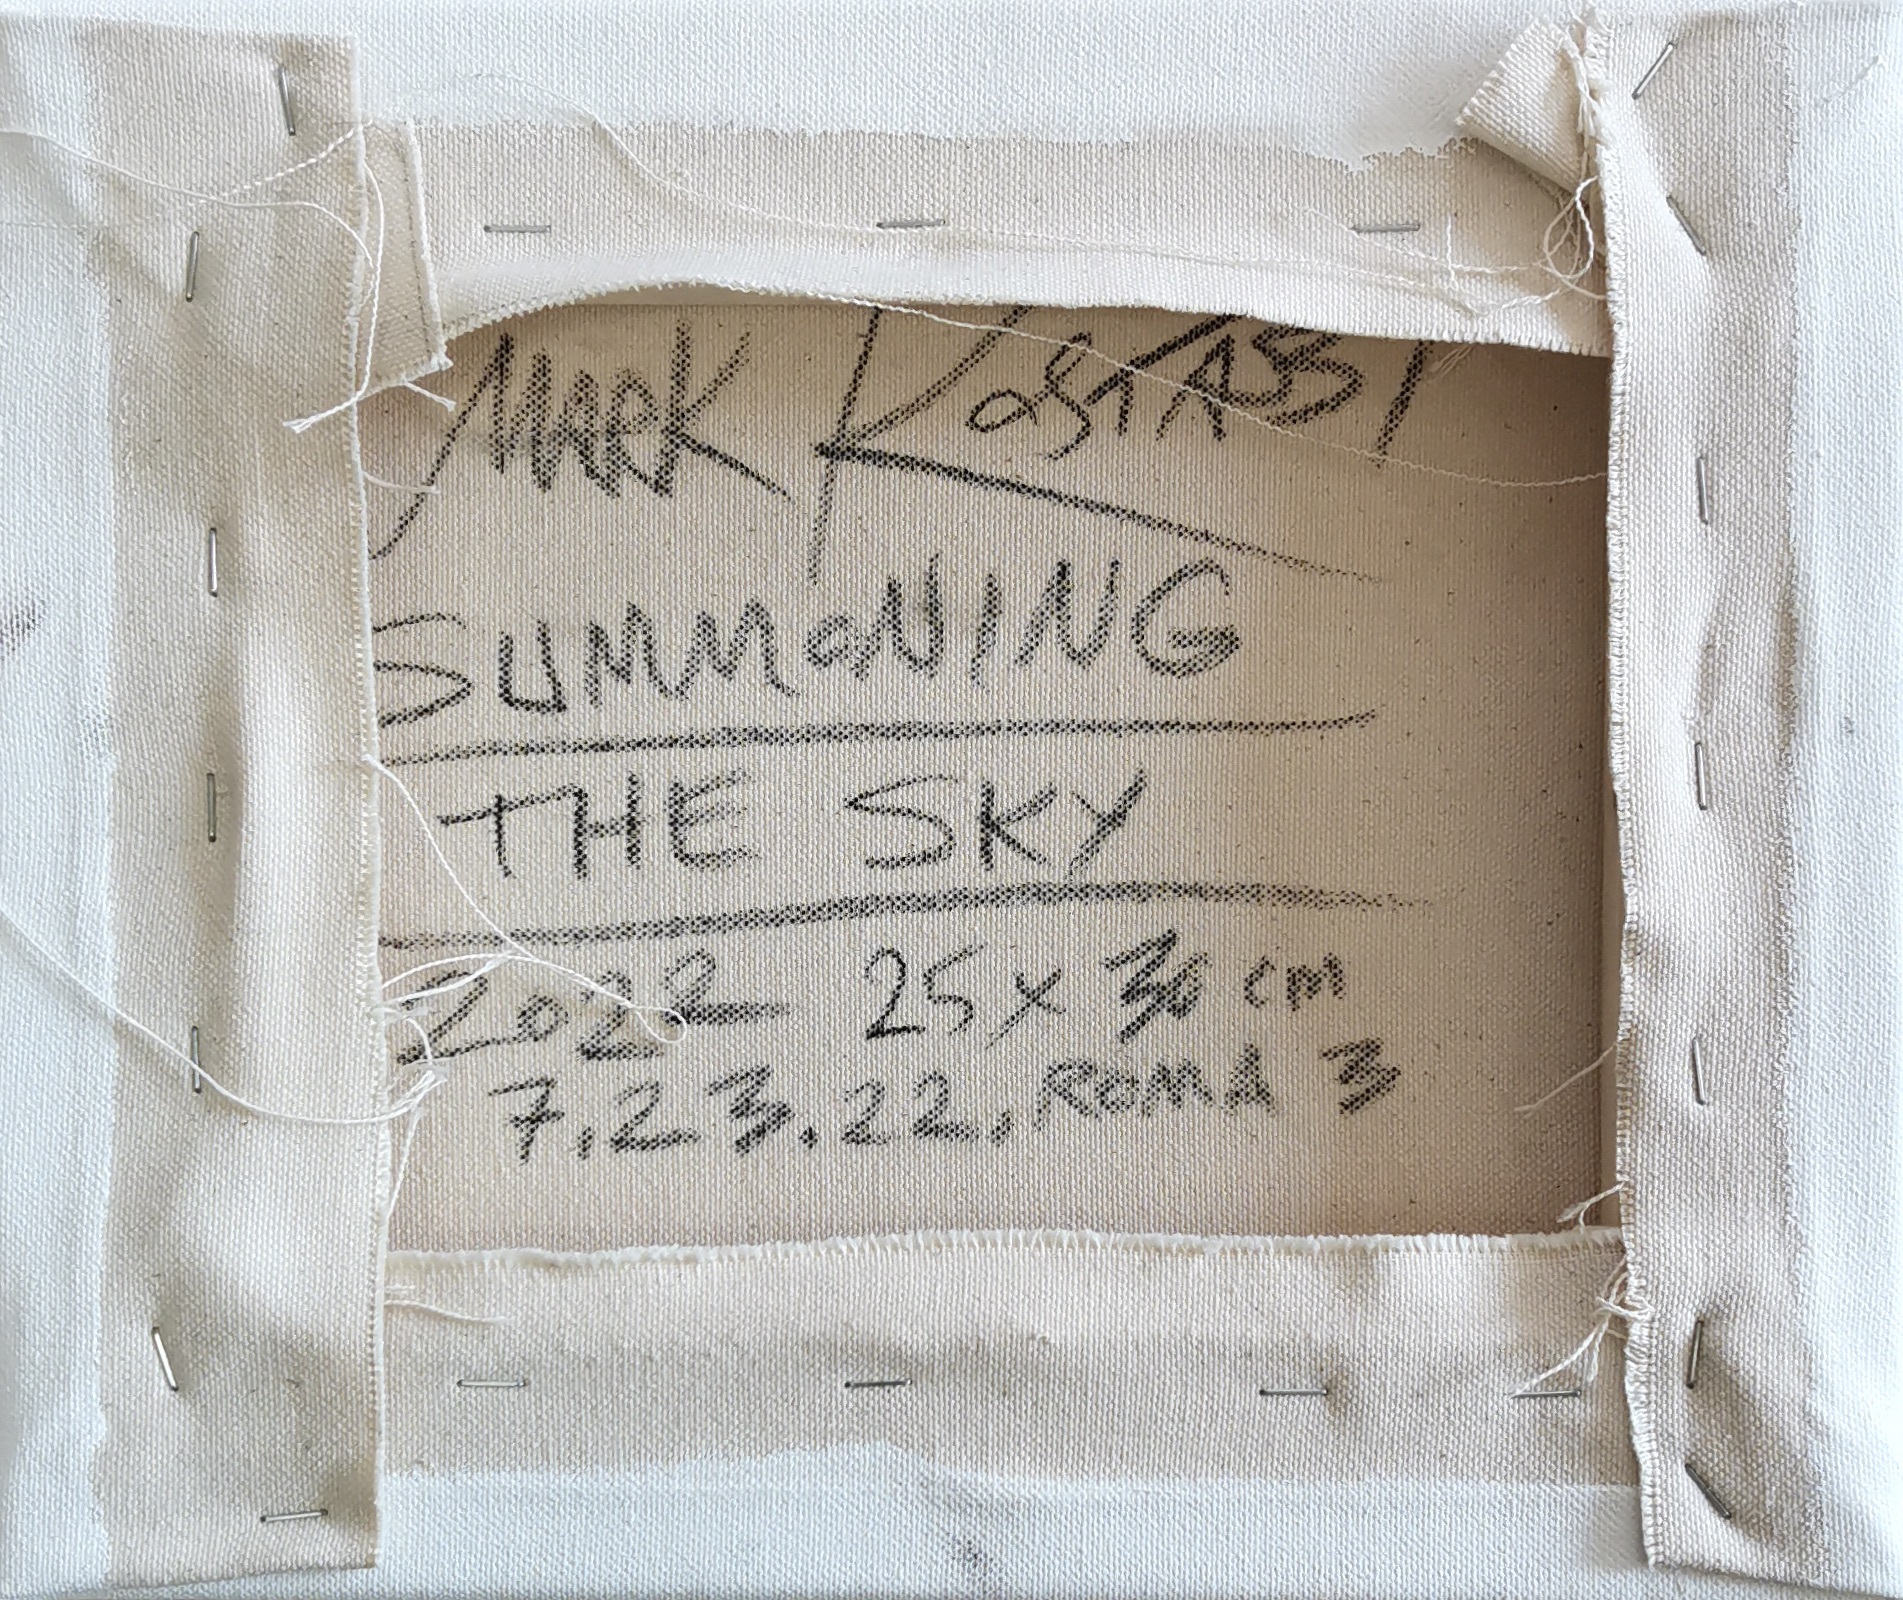 MARK KOSTABI
SUMMONING
THE SKY
2022 25 x 30 cm
7.23.22, ROMA 3